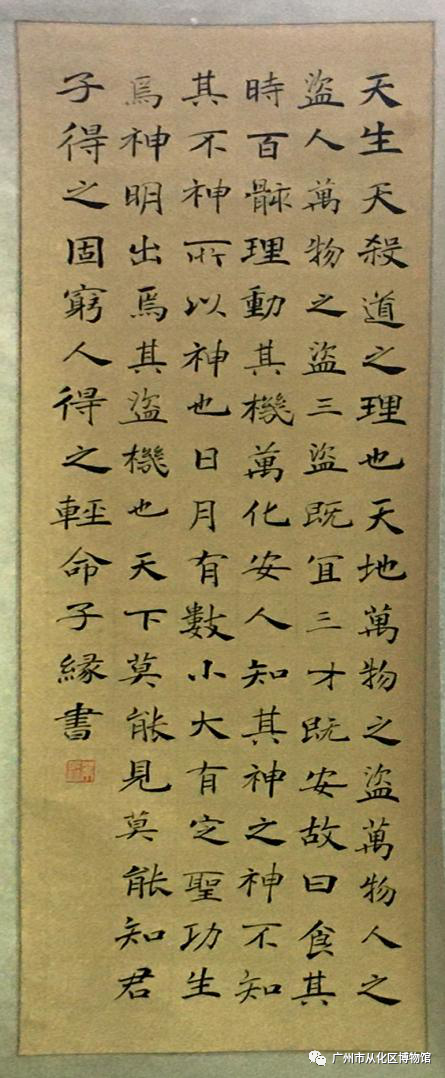 天生天殺道之理也天地萬物之盜萬物人之
盜人萬物之盜三盜既宜三才既安故曰食其
時百骸理動其機萬化安人知其神之神不知
其不神所以神也日月有數小大有定聖功生
焉神明出焉其盜機也天下莫能見莫能知君
子得之固窮人得之輕命子緣書
广州市从化区博物馆